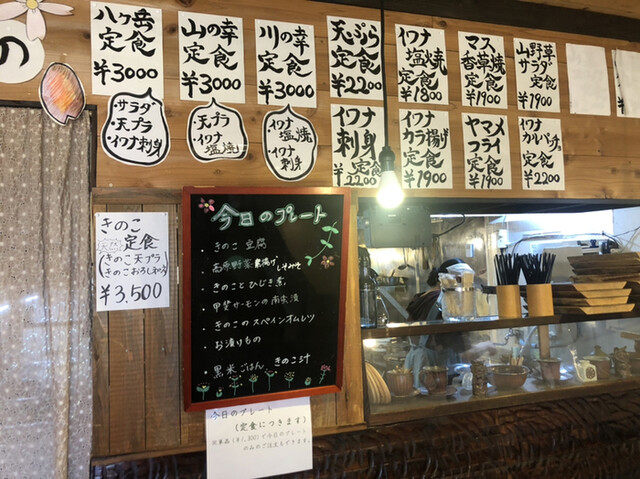 の
八ヶ岳
定食
¥3000
山の幸
定食
¥3000
川の幸
定食
¥3000
天ぷら
定食
¥2200
イワナ
塩焼
定食
¥1800
マス
香草焼
定食
¥1900
山野草
サラダ
定食
¥1900
・サラダ
・天プラ
・イワナ刺身
・天プラ
・イワナ
塩焼
・イワナ
塩焼
・イワナ
刺身
イワナ
刺身
定食
¥2200
イワナ
カラ揚げ
定食
¥1900
ヤマメ
フライ
定食
¥1900
イワナ
カルパッチョ
定食
¥2200
きのこ
定食
(きのこ天プラ
きのこおろし和え)
¥3,500
今日のプレート
・きのこ豆腐
・高原野菜素揚げ しそみそ
・きのことひじき煮
・甲斐サーモンの南蛮漬
・きのこのスペインオムレツ
・お漬けもの
・黒米ごはん きのこ汁
今日のプレート
(定食につきます)
※単品(¥1,500)で今日のプレート
のみのご注文もできます。